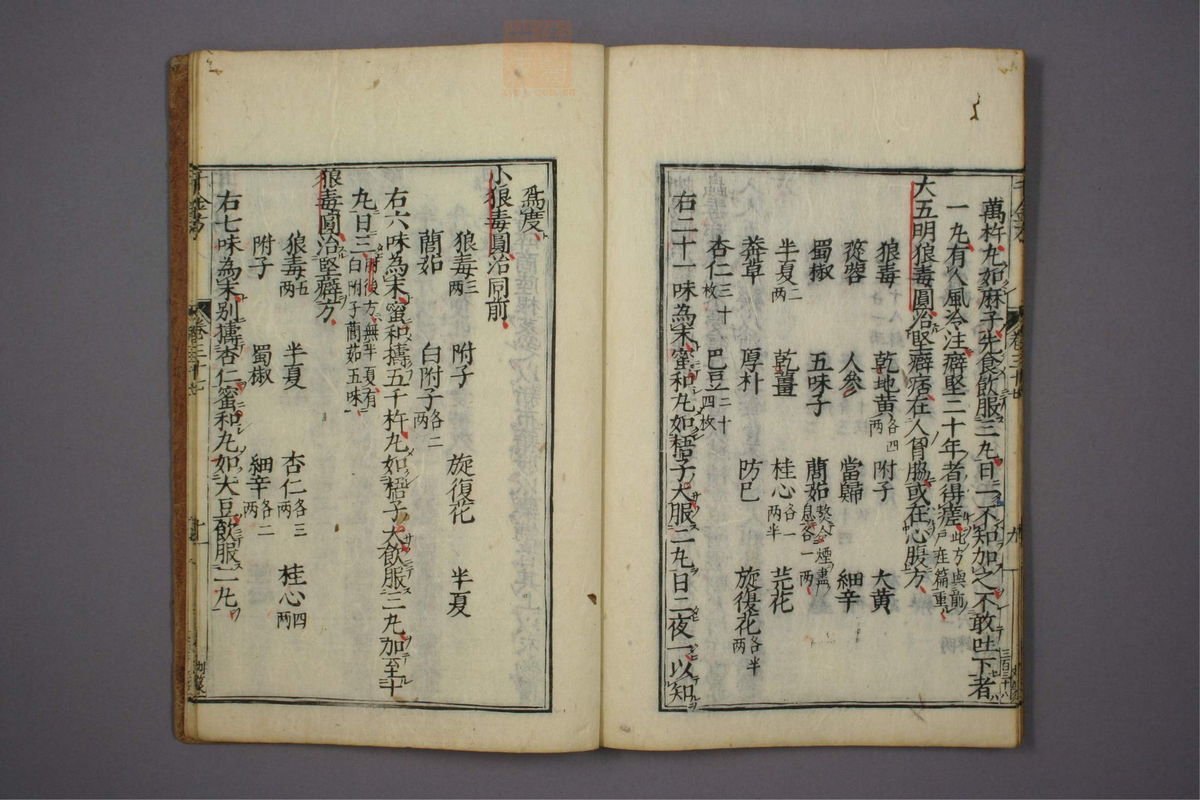 萬杵丸如麻子先食飲服三丸日二不知加之不敢吐下者
一丸有人風冷注癖堅二十年者得瘥此方與前尸在篇重
大五明狼毒圓治堅癖痞在人胷脇或在心腹方
狼毒 乾地黃各四两 附子 大黃
蓯蓉 人參 當歸 細辛
蜀椒 五味子 䕡茹熬令煙盡息各一两
半夏二两 乾薑 桂心各一两半 芫花
莾草 厚朴 防巳 旋復花各半两
杏仁三十枚 巴豆二十四枚
右二十一味為末蜜和丸如梧子大服二丸日二夜一以知
為度
小狼毒圓治同前
狼毒三两 附子 旋復花 半夏
䕡茹 白附子各二两
右六味為末蜜和擣五千杵丸如梧子大飲服三丸加至十
丸日三肘後方無半夏有白附子䕡茹五味
狼毒圓治堅癖方
狼毒五两 半夏 杏仁各三两 桂心四两
附子 蜀椒 細辛各二两
右七味為末别擣杏仁蜜和丸如大豆飲服二丸